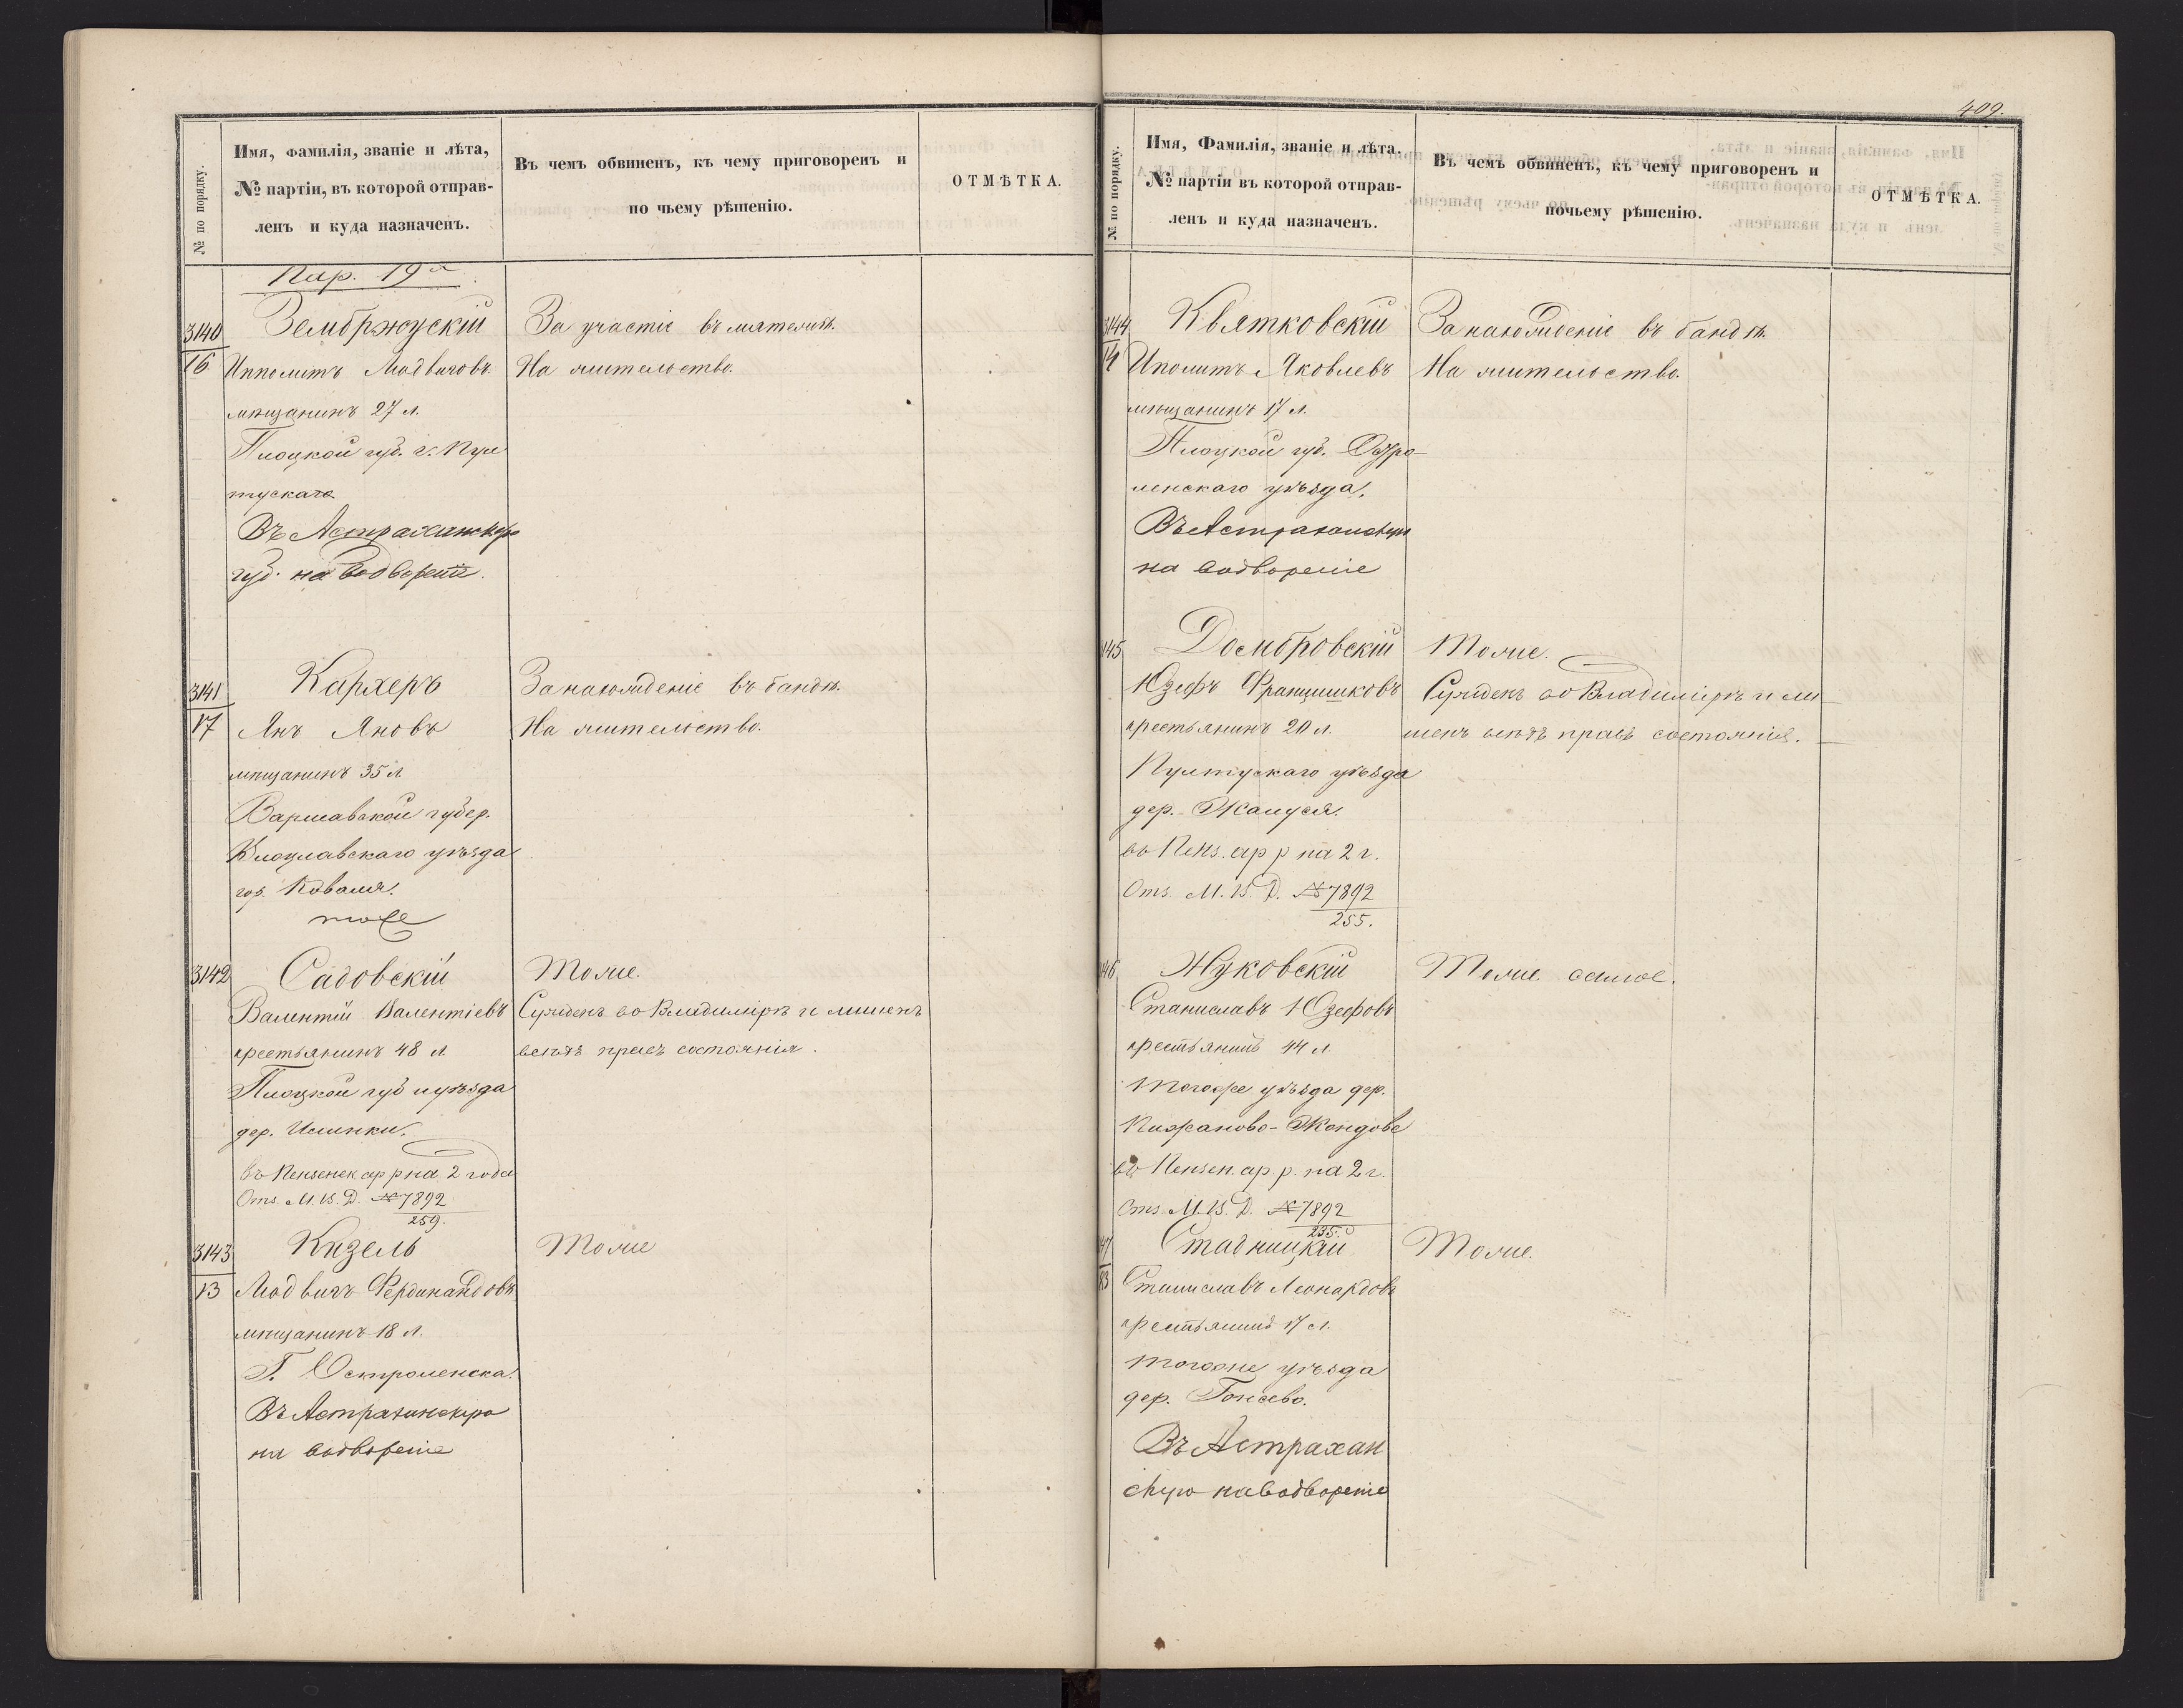 № по порядку.
Имя, фамилія, званіе и лѣта,
№ партіи, въ которой отправ-
ленъ и куда назначенъ.
Въ чемъ обвиненъ, къ чему приговоренъ и
по чьему рѣшенію.
ОТМѢТКА.
Пар. 19я
3140
16
Зембржускій
Ипполитъ Людвиговъ
мѣщанинъ 27 л.
Плоцкой губ. г. Пул
тускаго
Въ Астраханскую
губ. на водвореніе.
За участіе въ мятежѣ.
На жительство.
3141
17
Кархеръ
Янъ Яновъ
мѣщанинъ 35 л
Варшавской губер.
Влоцлавскаго уѣзда
гор. Коваля.
тоже
За нахожденіе въ бандѣ.
На жительство.
3142
Садовскій
Валентій Валентіевъ
крестьянинъ 48 л
Плоцкой губ и уѣзда
дер.
въ Пензенск ар р на 2 года
Отз. М. В. Д. № 7892
259.
Тоже.
Сужденъ во Владимірѣ и лишенъ
всѣхъ правъ состоянія.
3143
13
Кизель
Людвигъ Фердинандовъ
мѣщанинъ 18 л.
Г. Остроленска.
Въ Астраханскую
на водвореніе
Тоже
409.
№ по порядку.
Имя, Фамилія, званіе и лѣта.
№ партіи въ которой отправ-
ленъ и куда назначенъ.
Въ чемъ обвиненъ, къ чему приговоренъ и
почьему рѣшенію.
ОТМѢТКА.
3144
14
Квятковскій
Иполитъ Яковлевъ
мѣщанинъ 17 л.
Плоцкой губ. Остро-
ленскаго уѣзда.
Въ Астраханскую
на водвореніе
За нахожденіе въ бандѣ.
На жительство.
145
Домбровскій
Юзефъ Францишковъ
крестьянинъ 20 л.
Пултускаго уѣзда
дер.
во Пенз. ар р на 2 г.
Отз. М. В. Д. № 7892
255.
Тоже.
Сужденъ во Владимірѣ и ли
шенъ всѣхъ правъ состоянія.
146
Жуковскій
Станиславъ Юзефовъ
крестьянинъ 44 л.
тогоже уѣзда дер.
Пижаново-Жондове
во Пензен. ар. р. на 2 г.
Отз. М. В. Д. № 7892
235.
Тоже самое.
147
13
Стадницкій
Станиславъ Леонардовъ
крестьянинъ 17 л.
тогоже уѣзда
дер. Гонсево.
Въ Астрахан
скую на водвореніе
Тоже.